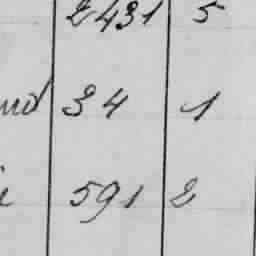 2431 5
34 1
591 2